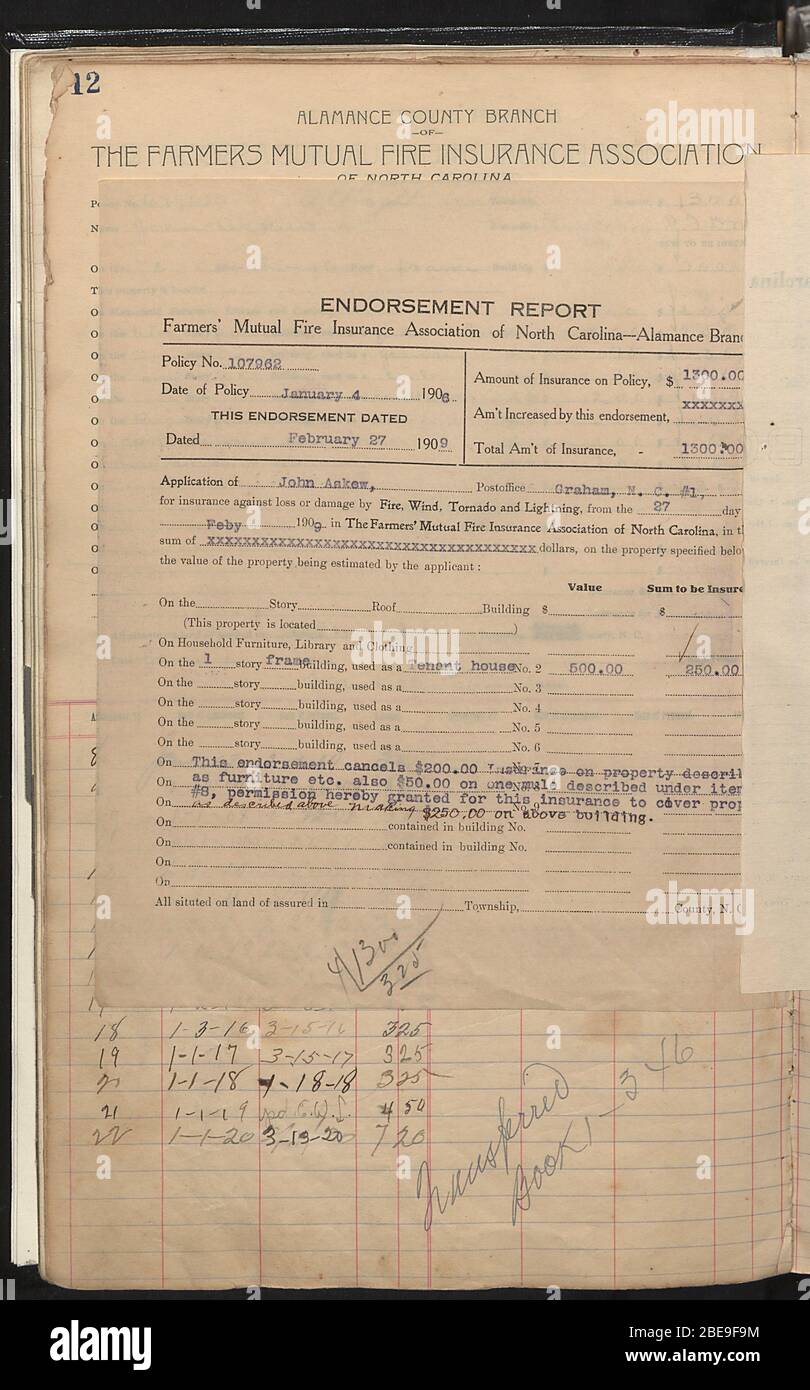 12
ALAMANCE COUNTY BRANCH
—OF—
THE FARMERS MUTUAL FIRE INSURANCE ASSOCIATION
OF NORTH CAROLINA
ENDORSEMENT REPORT
Farmers' Mutual Fire Insurance Association of North Carolina—Alamance Bran
Policy No. 107962
Date of Policy January 4 1906
THIS ENDORSEMENT DATED
Dated February 27 1909
Amount of Insurance on Policy, $ 1300.00
Am't Increased by this endorsement, xxxxxxx
Total Am't of Insurance, - 1300.00
Application of John Askew, Postoffice Graham, N. C. #1,
for insurance against loss or damage by Fire, Wind, Tornado and Lightning, from the 27 day
Feby 1909 in The Farmers' Mutual Fire Insurance Association of North Carolina, in t
sum of xxxxxxxxxxxxxxxxxxxxxxxxxxxxxxxxxxxxx dollars, on the property specified belo
the value of the property being estimated by the applicant :
Value Sum to be Insure
On the Story Roof Building $ $
(This property is located )
On Household Furniture, Library and Clothing
On the 1 story frame building, used as a Tenant house No. 2 500.00 250.00
On the story building, used as a No. 3
On the story building, used as a No. 4
On the story building, used as a No. 5
On the story building, used as a No. 6
On This endorsement cancels $200.00 Insurance on property descri
On as furniture etc. also $50.00 on one mule described under ite
On #8, permission hereby granted for this insurance to cover pro
as described above making $250.00 on above building.
On contained in building No.
On contained in building No.
On
On
All situted on land of assured in Township, County, N. C
4/1300
325
18 1-3-16 3-15-16 325
19 1-1-17 3-15-17 325
1-1-18 1-18-18 325
21 1-1-19 4 50
22 1-1-20 3-13-20 7 20
Transferred
Book 1-346
alamy
Image ID: 2BE9F9M
www.alamy.com